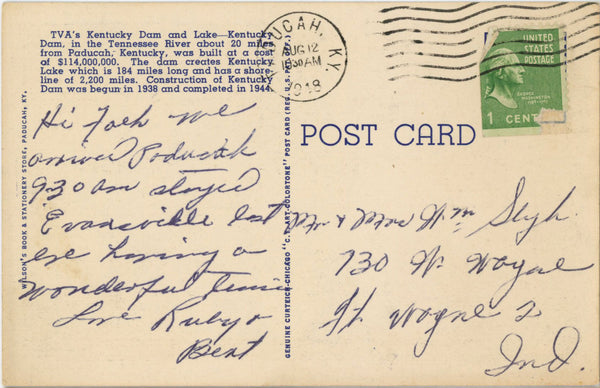 TVA's Kentucky Dam and Lake—Kentucky
Dam, in the Tennessee River about 20 miles
from Paducah, Kentucky, was built at a cost
of $114,000,000. The dam creates Kentucky
Lake which is 184 miles long and has a shore
line of 2,200 miles. Construction of Kentucky
Dam was begun in 1938 and completed in 1944.
Hi Folk we
arrived Paducah
930 am stayed
Evansville last
eve having a
wonderful time
Love Ruby &
Bert
WILSON'S BOOK & STATIONERY STORE, PADUCAH, KY.
GENUINE CURTEICH-CHICAGO "C.T. ART-COLORTONE" POST CARD (REG. U.S. PAT. OFF.)
UCAH, KY.
AUG 12
1030 AM
1948
UNITED
STATES
POSTAGE
GEORGE
WASHINGTON
1 CENT
POST CARD
730 W. Wayne
Ft. Wayne 2
Ind.